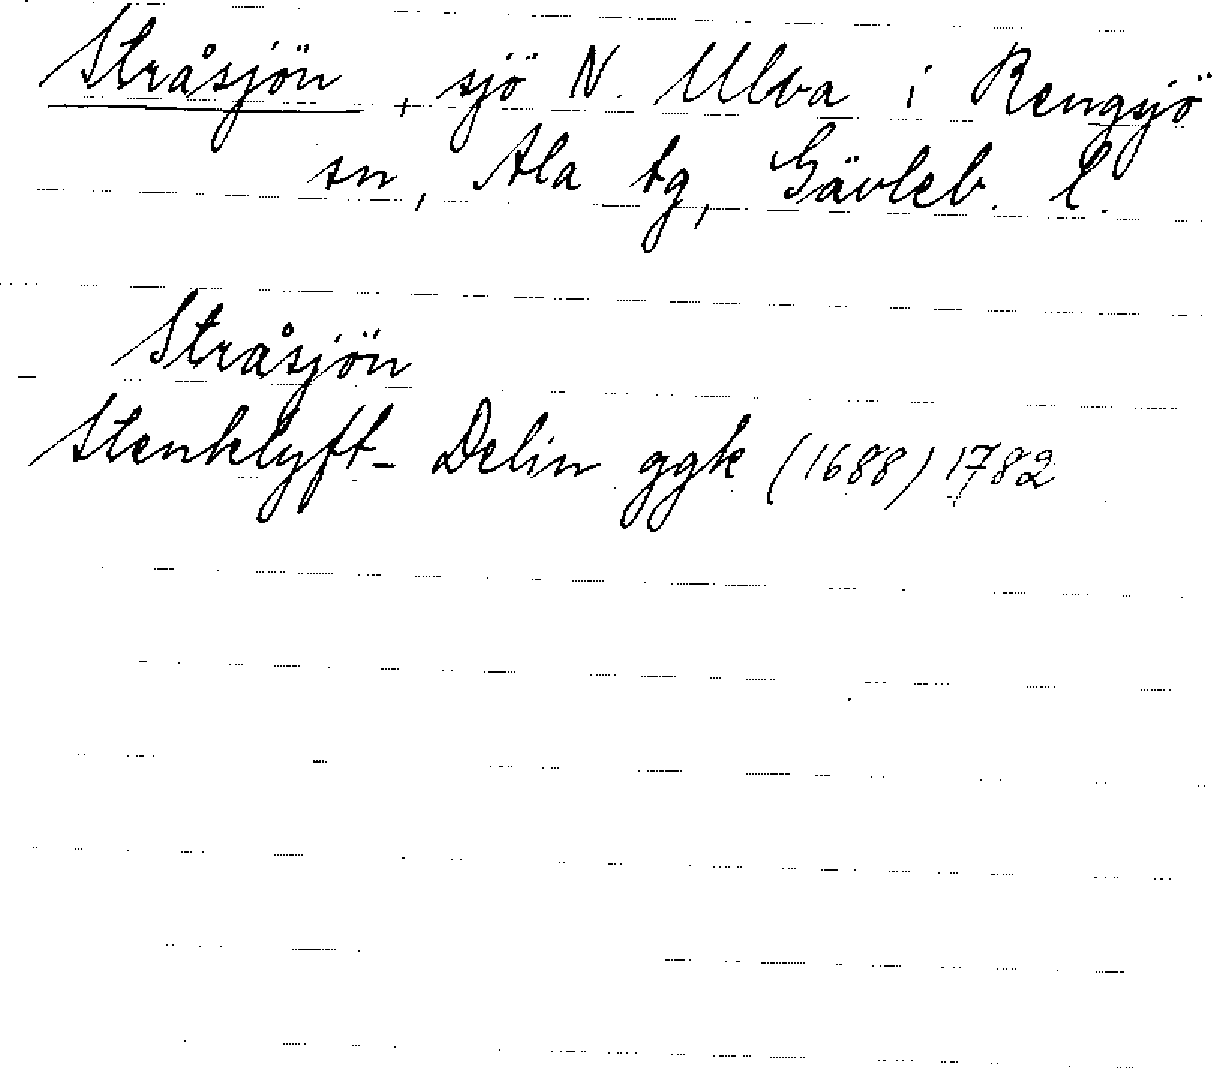 Stråsjön, sjö N. Ulva i Rengsjö
sn, Ala tg, Gävleb. l.
Stråsjön
Stenklyft- Delin ggk (1688) 1782